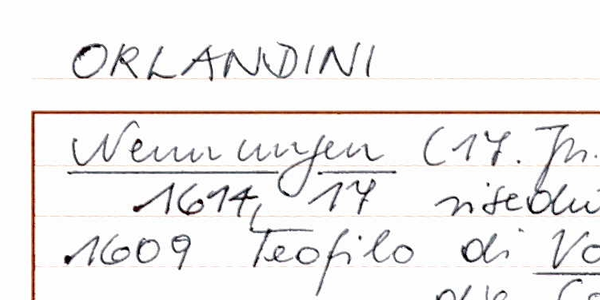 ORLANDINI
Nennungen (17. Jh.
1614, 17
1609 Teofilo di Vo